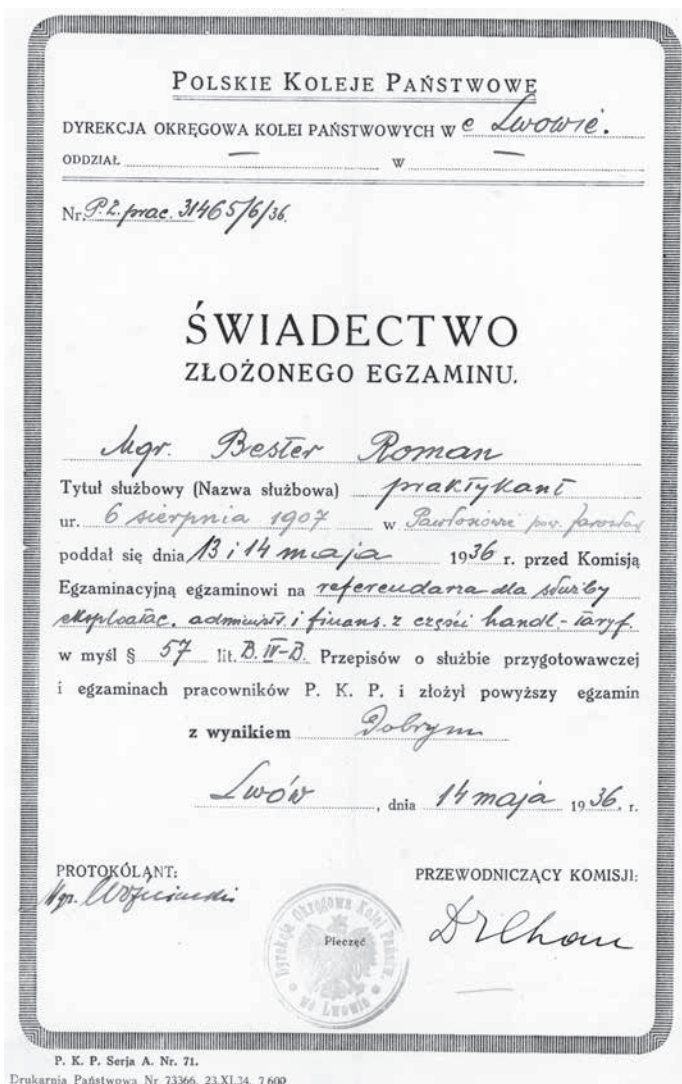 POLSKIE KOLEJE PAŃSTWOWE
DYREKCJA OKRĘGOWA KOLEI PAŃSTWOWYCH W e Lwowie.
ODDZIAŁ — W —
Nr. P.Z. prac. 31465/6/36.
ŚWIADECTWO
ZŁOŻONEGO EGZAMINU.
Mgr. Bester Roman
Tytuł służbowy (Nazwa służbowa) praktykant
ur. 6 sierpnia 1907 w pow. Jarosław
poddał się dnia 13 i 14 maja 1936 r. przed Komisją
Egzaminacyjną egzaminowi na referendarza dla służby
eksploatac. administr. i finans. z części handl-taryf.
w myśl § 57 lit. B. IV-B. Przepisów o służbie przygotowawczej
i egzaminach pracowników P. K. P. i złożył powyższy egzamin
z wynikiem Dobrym
Lwów, dnia 14 maja 1936. r.
PROTOKÓLANT:
Mgr.
PRZEWODNICZĄCY KOMISJI:
Pieczęć
Dyrekcja Okręgowa Kolei Państw.
we Lwowie
P. K. P. Serja A. Nr. 71.
Drukarnia Państwowa Nr 73366. 23.XI.34. 7.600